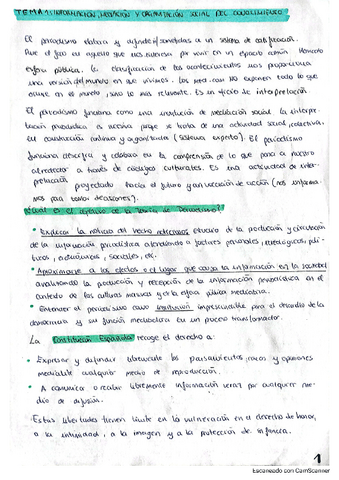 TEMA 1: INFORMACIÓN, MEDIACIÓN Y ORGANIZACIÓN SOCIAL DEL CONOCIMIENTO
El periodismo elabora y difunde contenidos a un sistema de
Pone el foco en aquello que nos interesa por vivir en un espacio común llamado
esfera pública. La clasificación de los acontecimientos nos proporciona
una versión del mundo en que vivimos. Los med. com NO exponen todo lo que
ocurre en el mundo, sino lo más relevante. Es un oficio de interpretación
El periodismo funciona como una institución de mediación social. La interpre-
tación periodística es necesaria porque se trata de una actividad social, colectiva,
en construcción continua y organizativa (sistema experto). El periodismo
funciona descifra y colabora en la comprensión de lo que pasa a nuestro
alrededor a través de códigos culturales. Es una actividad de inter-
pretación proyectada hacia el futuro y una vocación de acción (nos informa-
mos para tomar decisiones).
¿Cuál es el objetivo de la Teoría del Periodismo?
• Explicar la noticia del hecho noticioso efectuado de la producción y circulación
de la información periodística atendiendo a factores personales, tecnológicos, polí-
ticos, económicos, sociales, etc.
• Aproximarse a los efectos o el lugar que causa la información en la sociedad
analizando la producción y recepción de la información periodística en el
contexto de las culturas masivas y de la esfera pública mediática.
• Entender el periodismo como institución imprescindible para el desarrollo de la
democracia y su función mediadora en un proceso transformador.
La Constitución Española recoge el derecho a:
• Expresar y difundir libremente los pensamientos, ideas y opiniones
mediante cualquier medio de reproducción.
• A comunicar o recibir libremente información veraz por cualquier me-
dio de difusión.
Estas libertades tienen límite en la vulneración en el derecho de honor,
a la intimidad, a la imagen y a la protección de infancia.
1
Escaneado con CamScanner